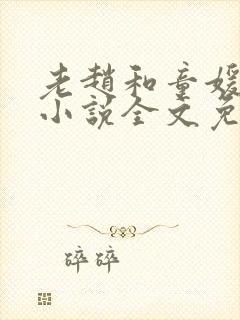 老赵和童媛
小说全文免
碎碎